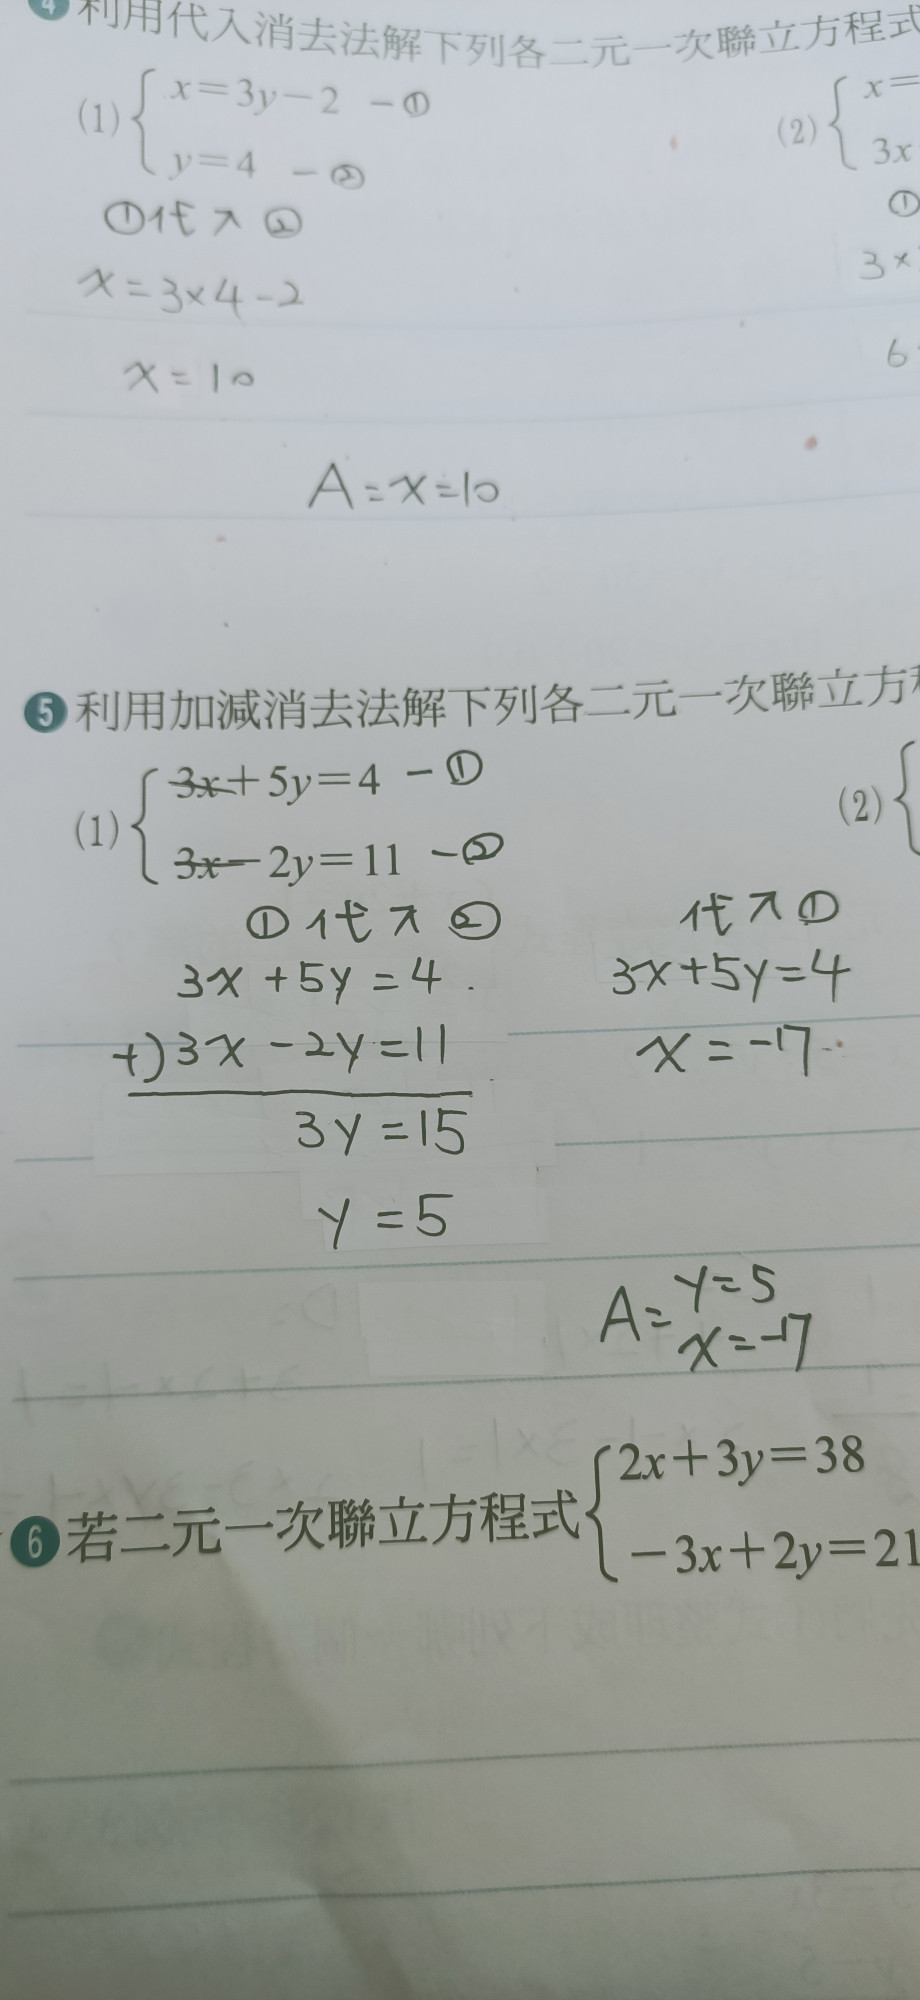 4 利用代入消去法解下列各二元一次聯立方程式
(1) { x=3y-2 -①
y=4 -②
①代入②
x=3×4-2
x=10
A=x=10
(2) { x=
3x
①
3×
6
5 利用加減消去法解下列各二元一次聯立方
(1) { 3x+5y=4 -①
3x-2y=11 -②
①代入②
3x+5y=4
+)3x-2y=11
3y=15
y=5
代入①
3x+5y=4
x=-17
A=y=5
x=-17
(2) {
6 若二元一次聯立方程式 { 2x+3y=38
-3x+2y=21